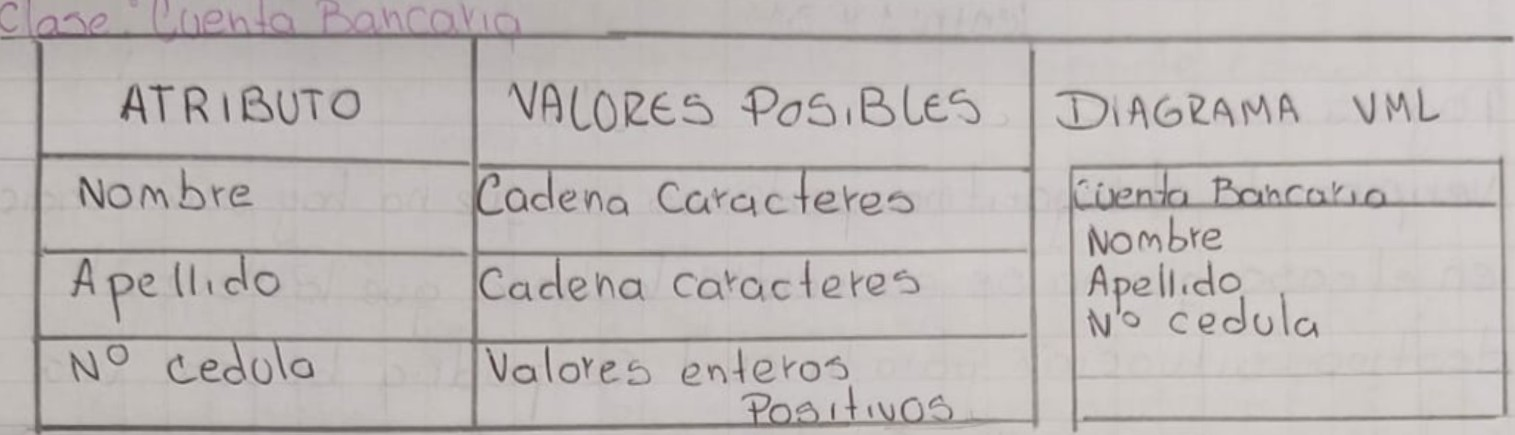 Clase: Cuenta Bancaria
ATRIBUTO VALORES POSIBLES DIAGRAMA VML
Nombre Cadena Caracteres
Apellido Cadena caracteres
Nº cedula Valores enteros
Positivos
Cuenta Bancaria
Nombre
Apellido
Nº cedula